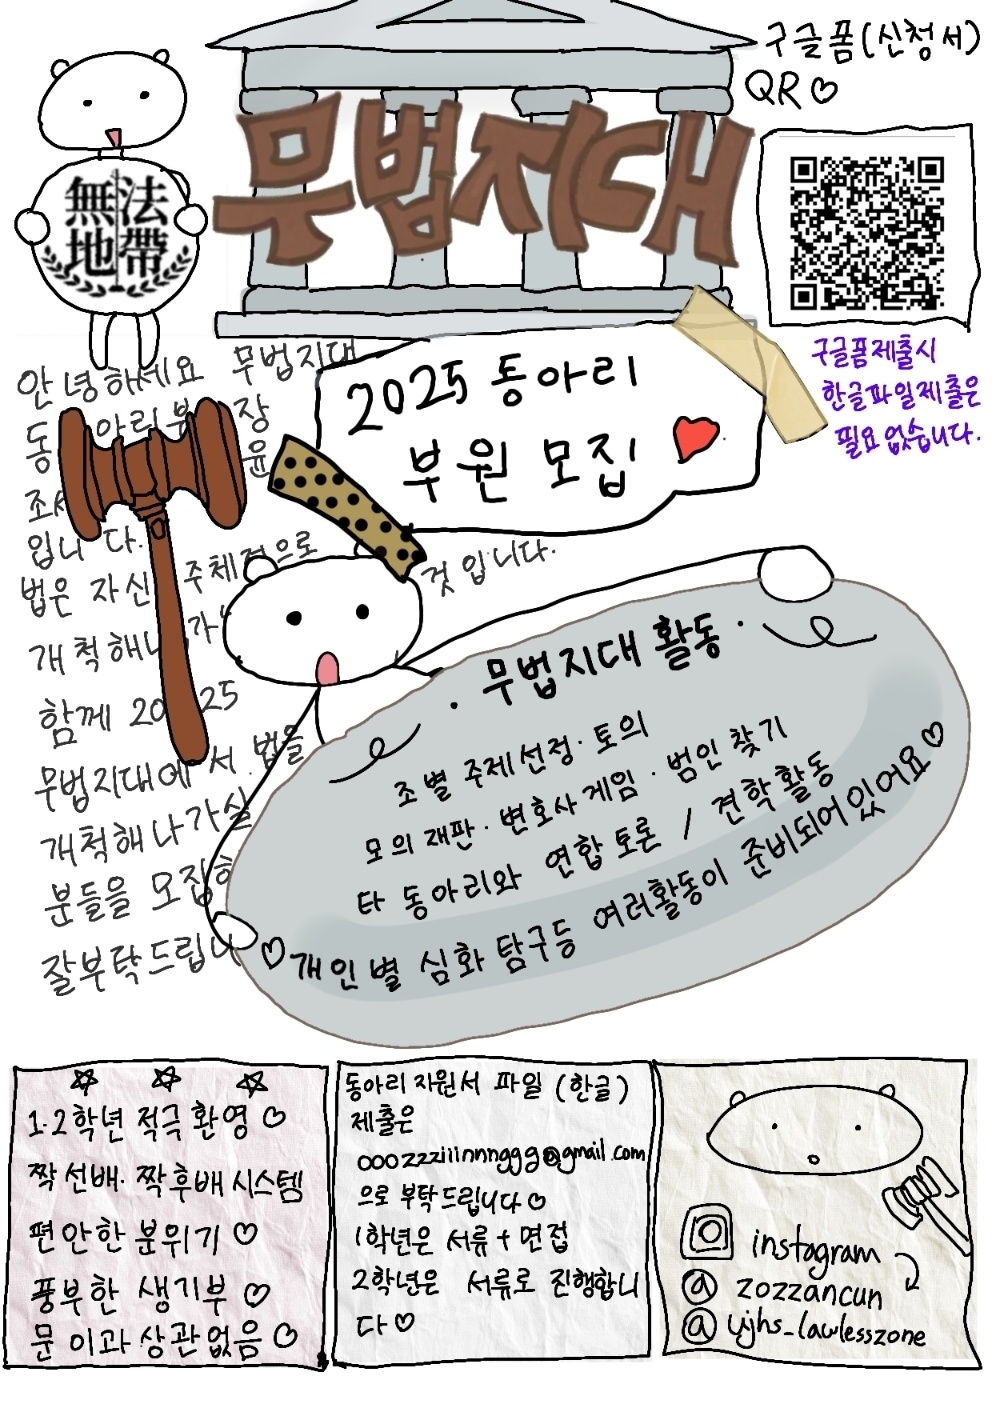 구글폼(신청서)
QR♡
무법지대
無法
地帶
구글폼제출시
한글파일제출은
필요없습니다.
2025 동아리
부원 모집
안녕하세요 무법지대
동아리부장
윤
입니다.
법은 자신 주체적으로
개척해나가 것입니다.
함께 2025
무법지대에서 법을
개척해나가실
분들을 모집
잘부탁드립니
· 무법지대 활동 ·
조별 주제선정·토의
모의재판·변호사게임·범인찾기
타 동아리와 연합토론 / 견학활동
♡개인별 심화탐구등 여러활동이 준비되어있어요♡
1·2학년 적극환영♡
짝선배·짝후배시스템
편안한 분위기♡
풍부한 생기부♡
문 이과 상관없음♡
동아리 지원서 파일 (한글)
제출은
ooozzziiinnnggg@gmail.com
으로 부탁드립니다♡
1학년은 서류+면접
2학년은 서류로 진행합니
다♡
instagram
@ zozzancun
@ yjhs_lawlesszone